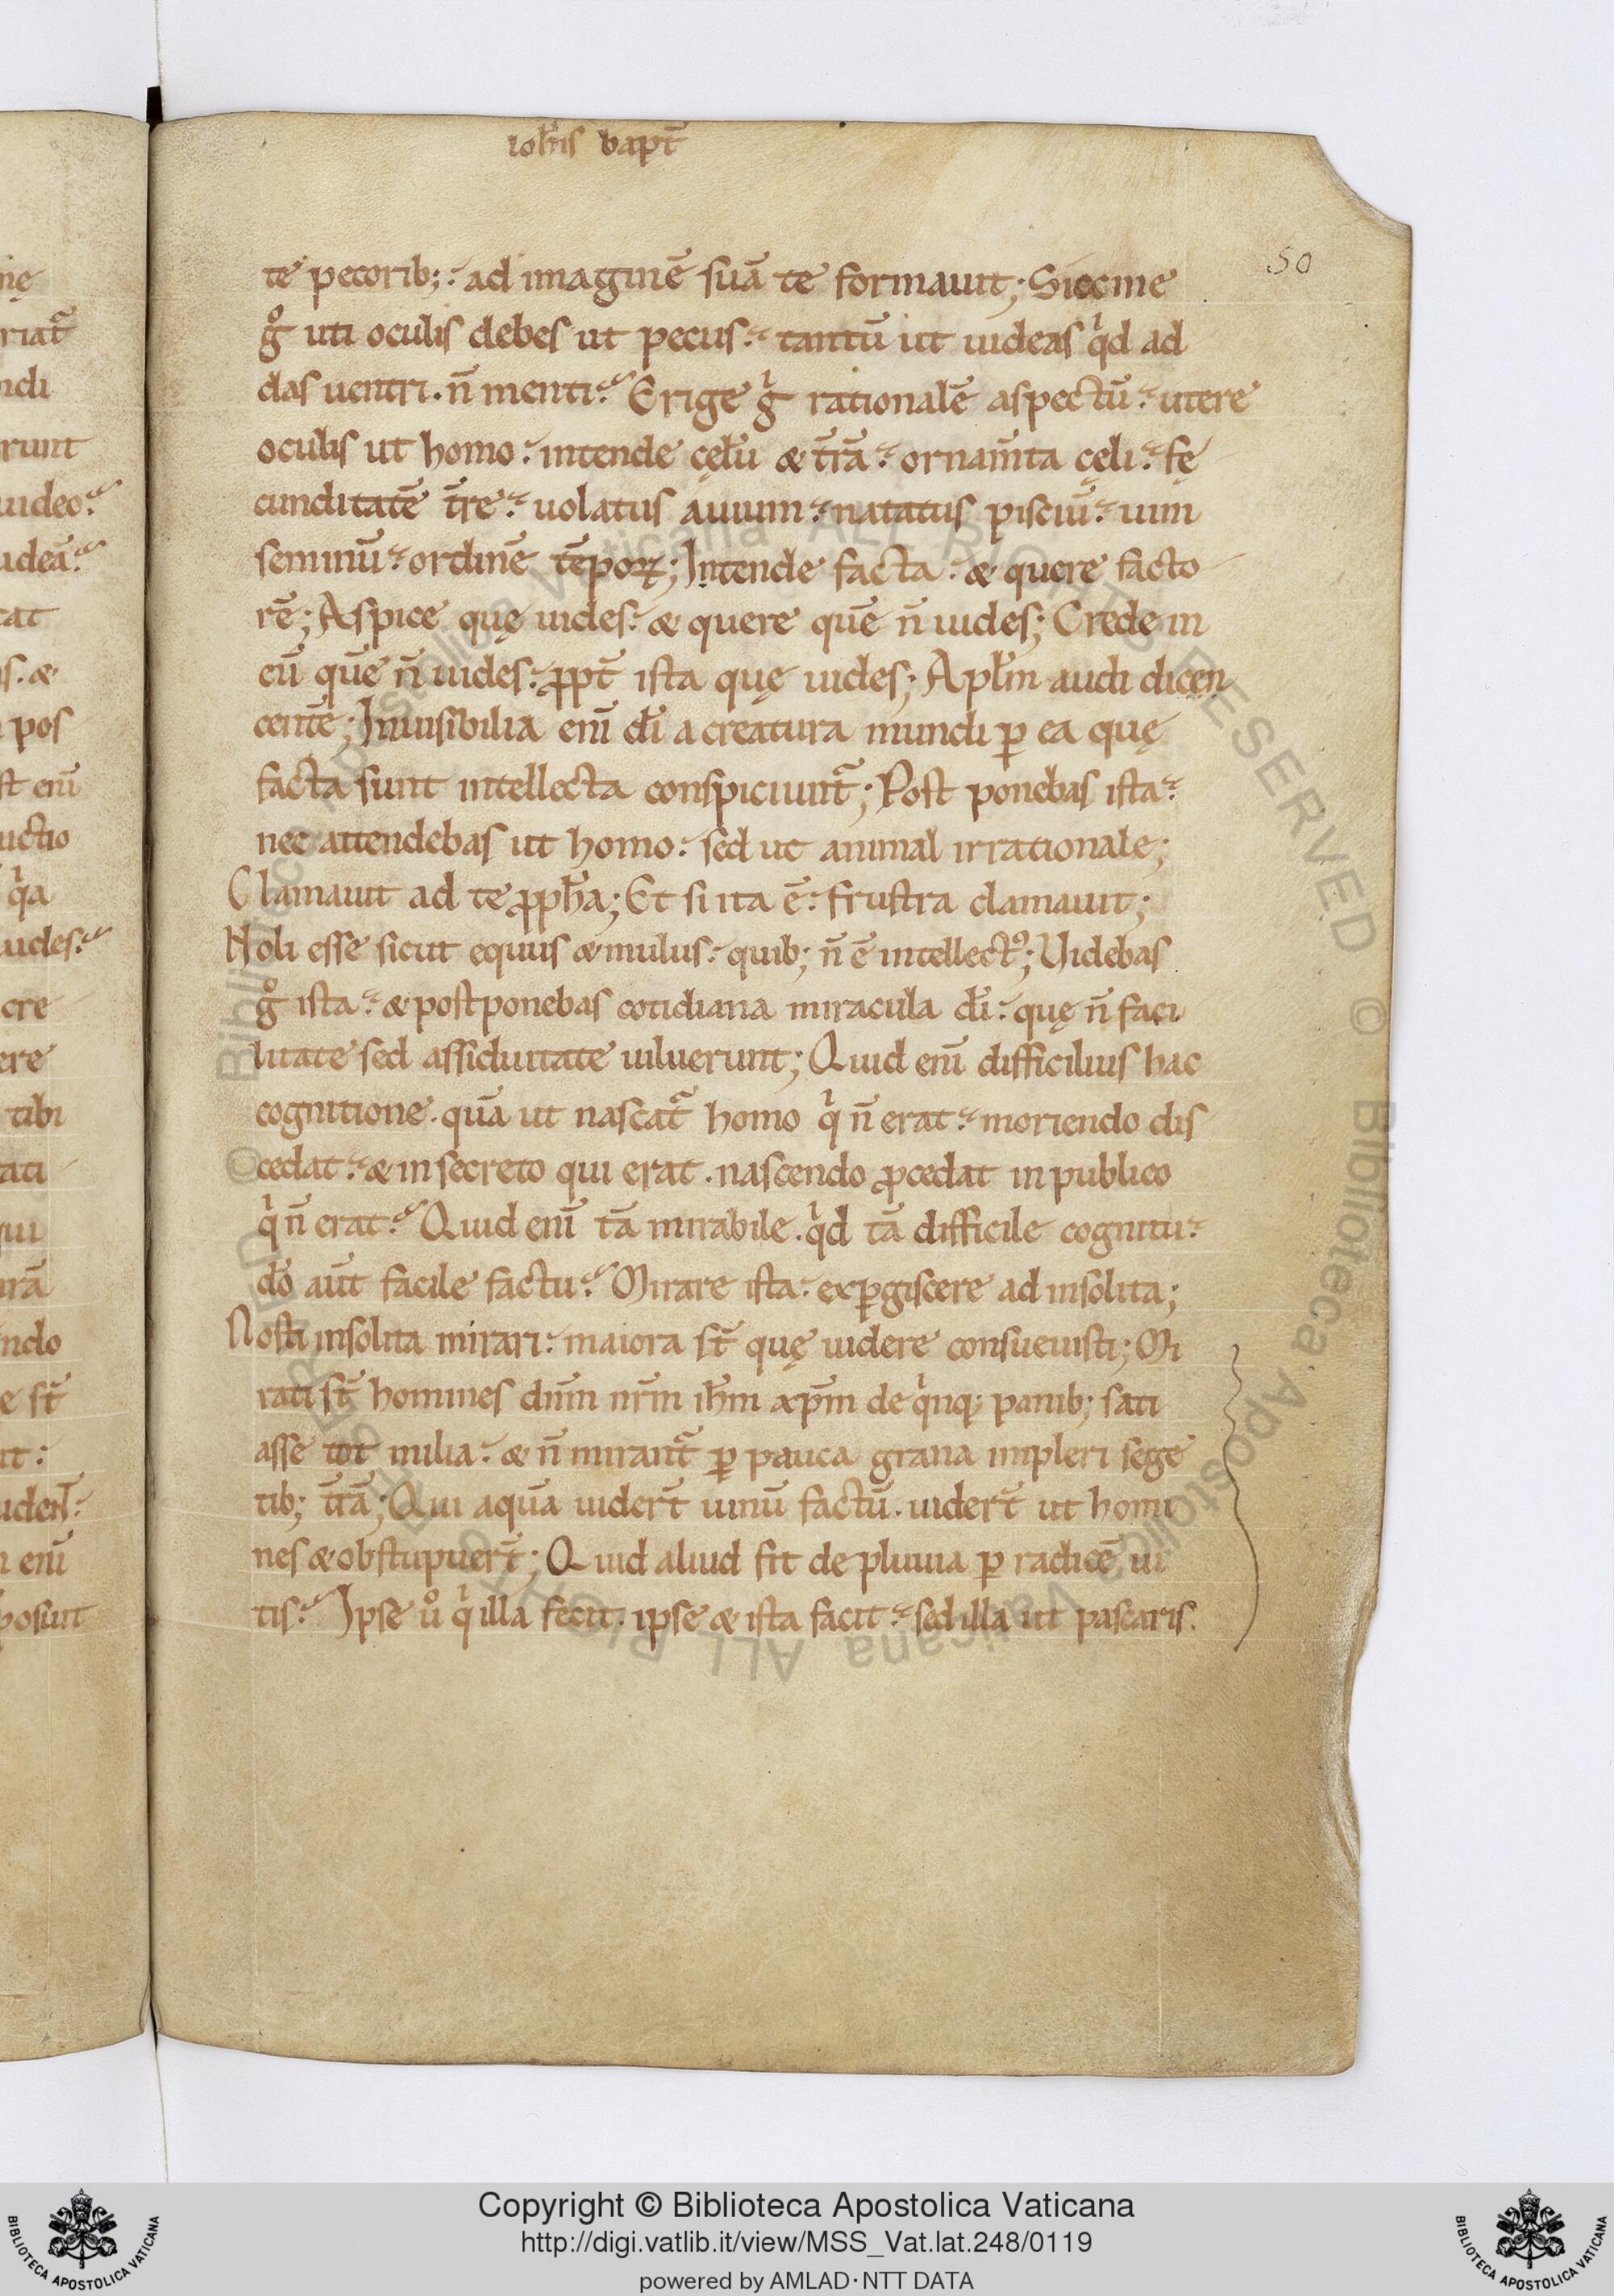 ioħis bapt̄
50
te pecorib; ad imaginē suā te formauit; Siccine
gͦ uti oculis debes ut pecus. tantū ut uideas qͥd ad
das uentri. n̄ menti? Erige gͥ rationalē aspectū. utere
oculis ut homo. intende cęlū & t̄rā. ornam̄ta cęli. fę
cunditatē t̄re. uolatus auium. natatus pisciū. uim
seminū. ordinē tēpoꝝ; Intende facta. & quere facto
rē; Aspice quę uides. & quere quē n̄ uides; Crede in
eū quē n̄ uides. ꝓpt̄ ista quę uides; Apl̄m audi dicen
centē; Inuisibilia enī dī a creatura mundi ꝑ ea quę
facta sunt intellecta conspiciunt᷑; Post ponebas ista.
nec attendebas ut homo. sed ut animal irrationale;
Clamauit ad te ꝓpħa; Et si ita ē. frustra clamauit;
Noli esse sicut equus & mulus. quib; n̄ ē intellectꝰ; Uidebas
gͦ ista. & postponebas cotidiana miracula dī. quę n̄ faci
litate sed assiduitate uiluerunt; Quid enī difficilius hac
cognitione. quā ut nascat᷑ homo qͥ n̄ erat. moriendo dis
cedat. & in secreto qui erat. nascendo ꝓcedat in publico
qͥ n̄ erat? Quid enī tā mirabile. qͥd tā difficile cognitu.
dō aūt facile factu? Mirare ista. exꝑgiscere ad insolita;
Nosti insolita mirari. maiora st̄ quę uidere consueuisti; Mi
rati st̄ homines dn̄m nr̄m iħm xp̄m de qͥnq; panib; sati
asse tot milia. & n̄ mirant᷑ ꝑ pauca grana impleri sege
tib; t̄rā; Qui aquā uidert̄ uinū factū. uidert̄ ut homi
nes & obstupuert̄; Quid aliud fit de pluuia ꝑ radicē ui
tis? Ipse uͦ qͥ illa fecit. ipse & ista facit. sed illa ut pascaris.
Copyright © Biblioteca Apostolica Vaticana
http://digi.vatlib.it/view/MSS_Vat.lat.248/0119
powered by AMLAD·NTT DATA